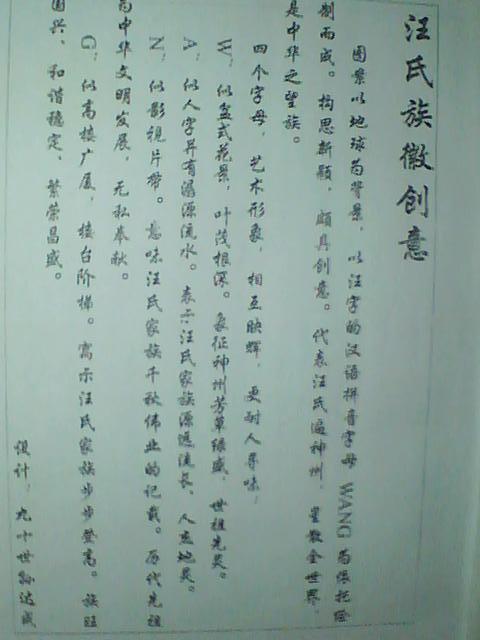 汪氏族徽创意
图案以地球为背景，以汪字的汉语拼音字母WANG为
制而成。构思新颖，颇具创意。代表汪氏遍神州，星散全世界。
是中华之望族。
四个字母，艺术形象，相互映辉，更耐人寻味，
W：似盆式花景，叶茂根深。象征神州芳草绿盛，世祖先灵。
A：似人字并有溺源流水。表示汪氏家族源远流长、人杰地灵。
N：似影视片带。意味汪氏家族千秋伟业的记载。历代先祖
为中华文明发展，无私奉献。
G：似高楼广厦，楼台阶梯。寓示汪氏家族步步登高。族旺
国兴、和谐稳定、繁荣昌盛。
设计：九十世孙达成